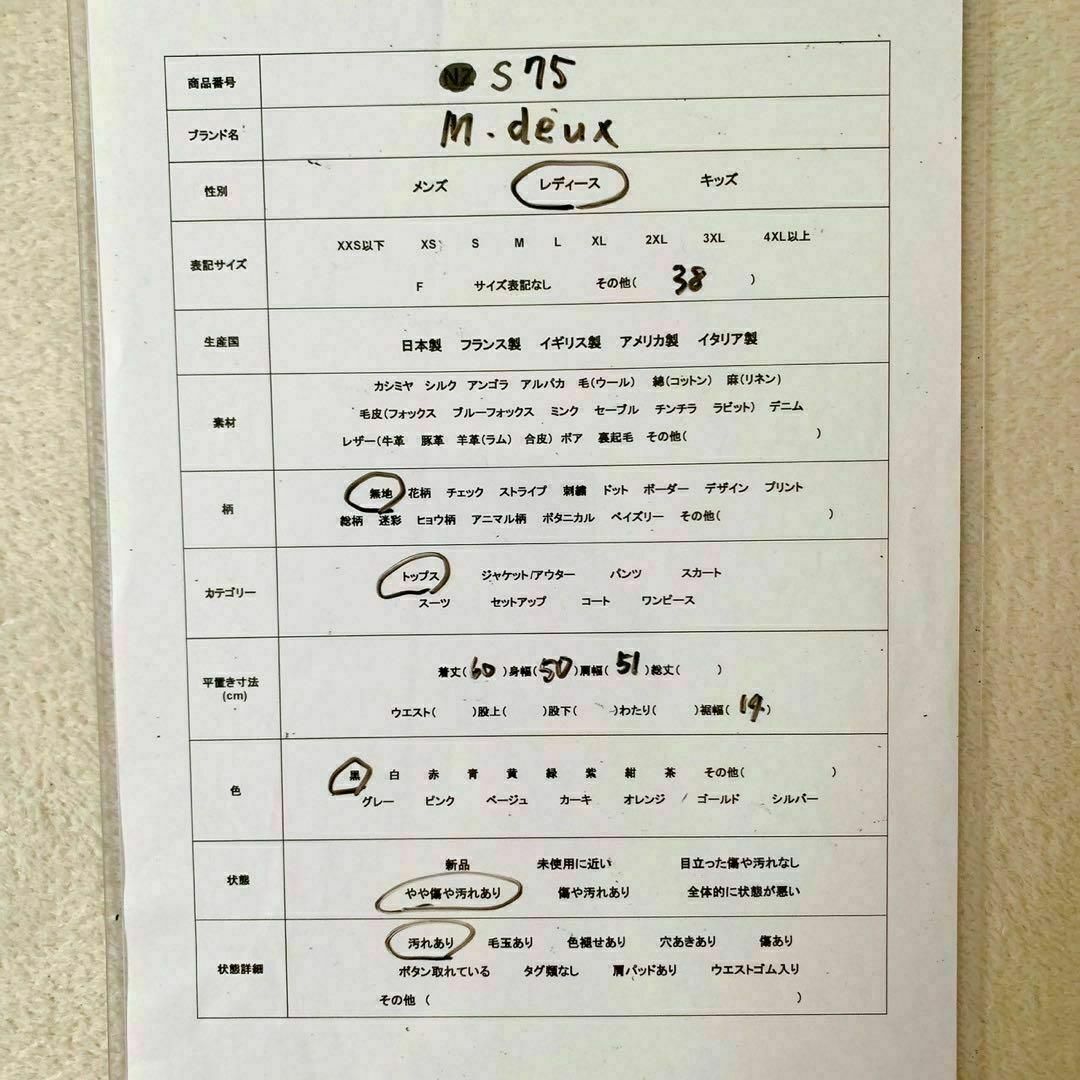 商品番号 NZ S75
ブランド名 M.deux
性別 メンズ レディース キッズ
XXS以下 XS S M L XL 2XL 3XL 4XL以上
表記サイズ
F サイズ表記なし その他( 38 )
生産国 日本製 フランス製 イギリス製 アメリカ製 イタリア製
カシミヤ シルク アンゴラ アルパカ 毛(ウール) 綿(コットン) 麻(リネン)
素材 毛皮(フォックス ブルーフォックス ミンク セーブル チンチラ ラビット) デニム
レザー(牛革 豚革 羊革(ラム) 合皮) ボア 裏起毛 その他( )
柄 無地 花柄 チェック ストライプ 刺繍 ドット ボーダー デザイン プリント
総柄 迷彩 ヒョウ柄 アニマル柄 ボタニカル ペイズリー その他( )
カテゴリー トップス ジャケット/アウター パンツ スカート
スーツ セットアップ コート ワンピース
平置き寸法 着丈( 60 )身幅( 50 )肩幅( 51 )総丈( )
(cm) ウエスト( )股上( )股下( )わたり( )裾幅( 19 )
色 黒 白 赤 青 黄 緑 紫 紺 茶 その他( )
グレー ピンク ベージュ カーキ オレンジ ゴールド シルバー
状態 新品 未使用に近い 目立った傷や汚れなし
やや傷や汚れあり 傷や汚れあり 全体的に状態が悪い
汚れあり 毛玉あり 色褪せあり 穴あきあり 傷あり
状態詳細 ボタン取れている タグ類なし 肩パッドあり ウエストゴム入り
その他 ( )